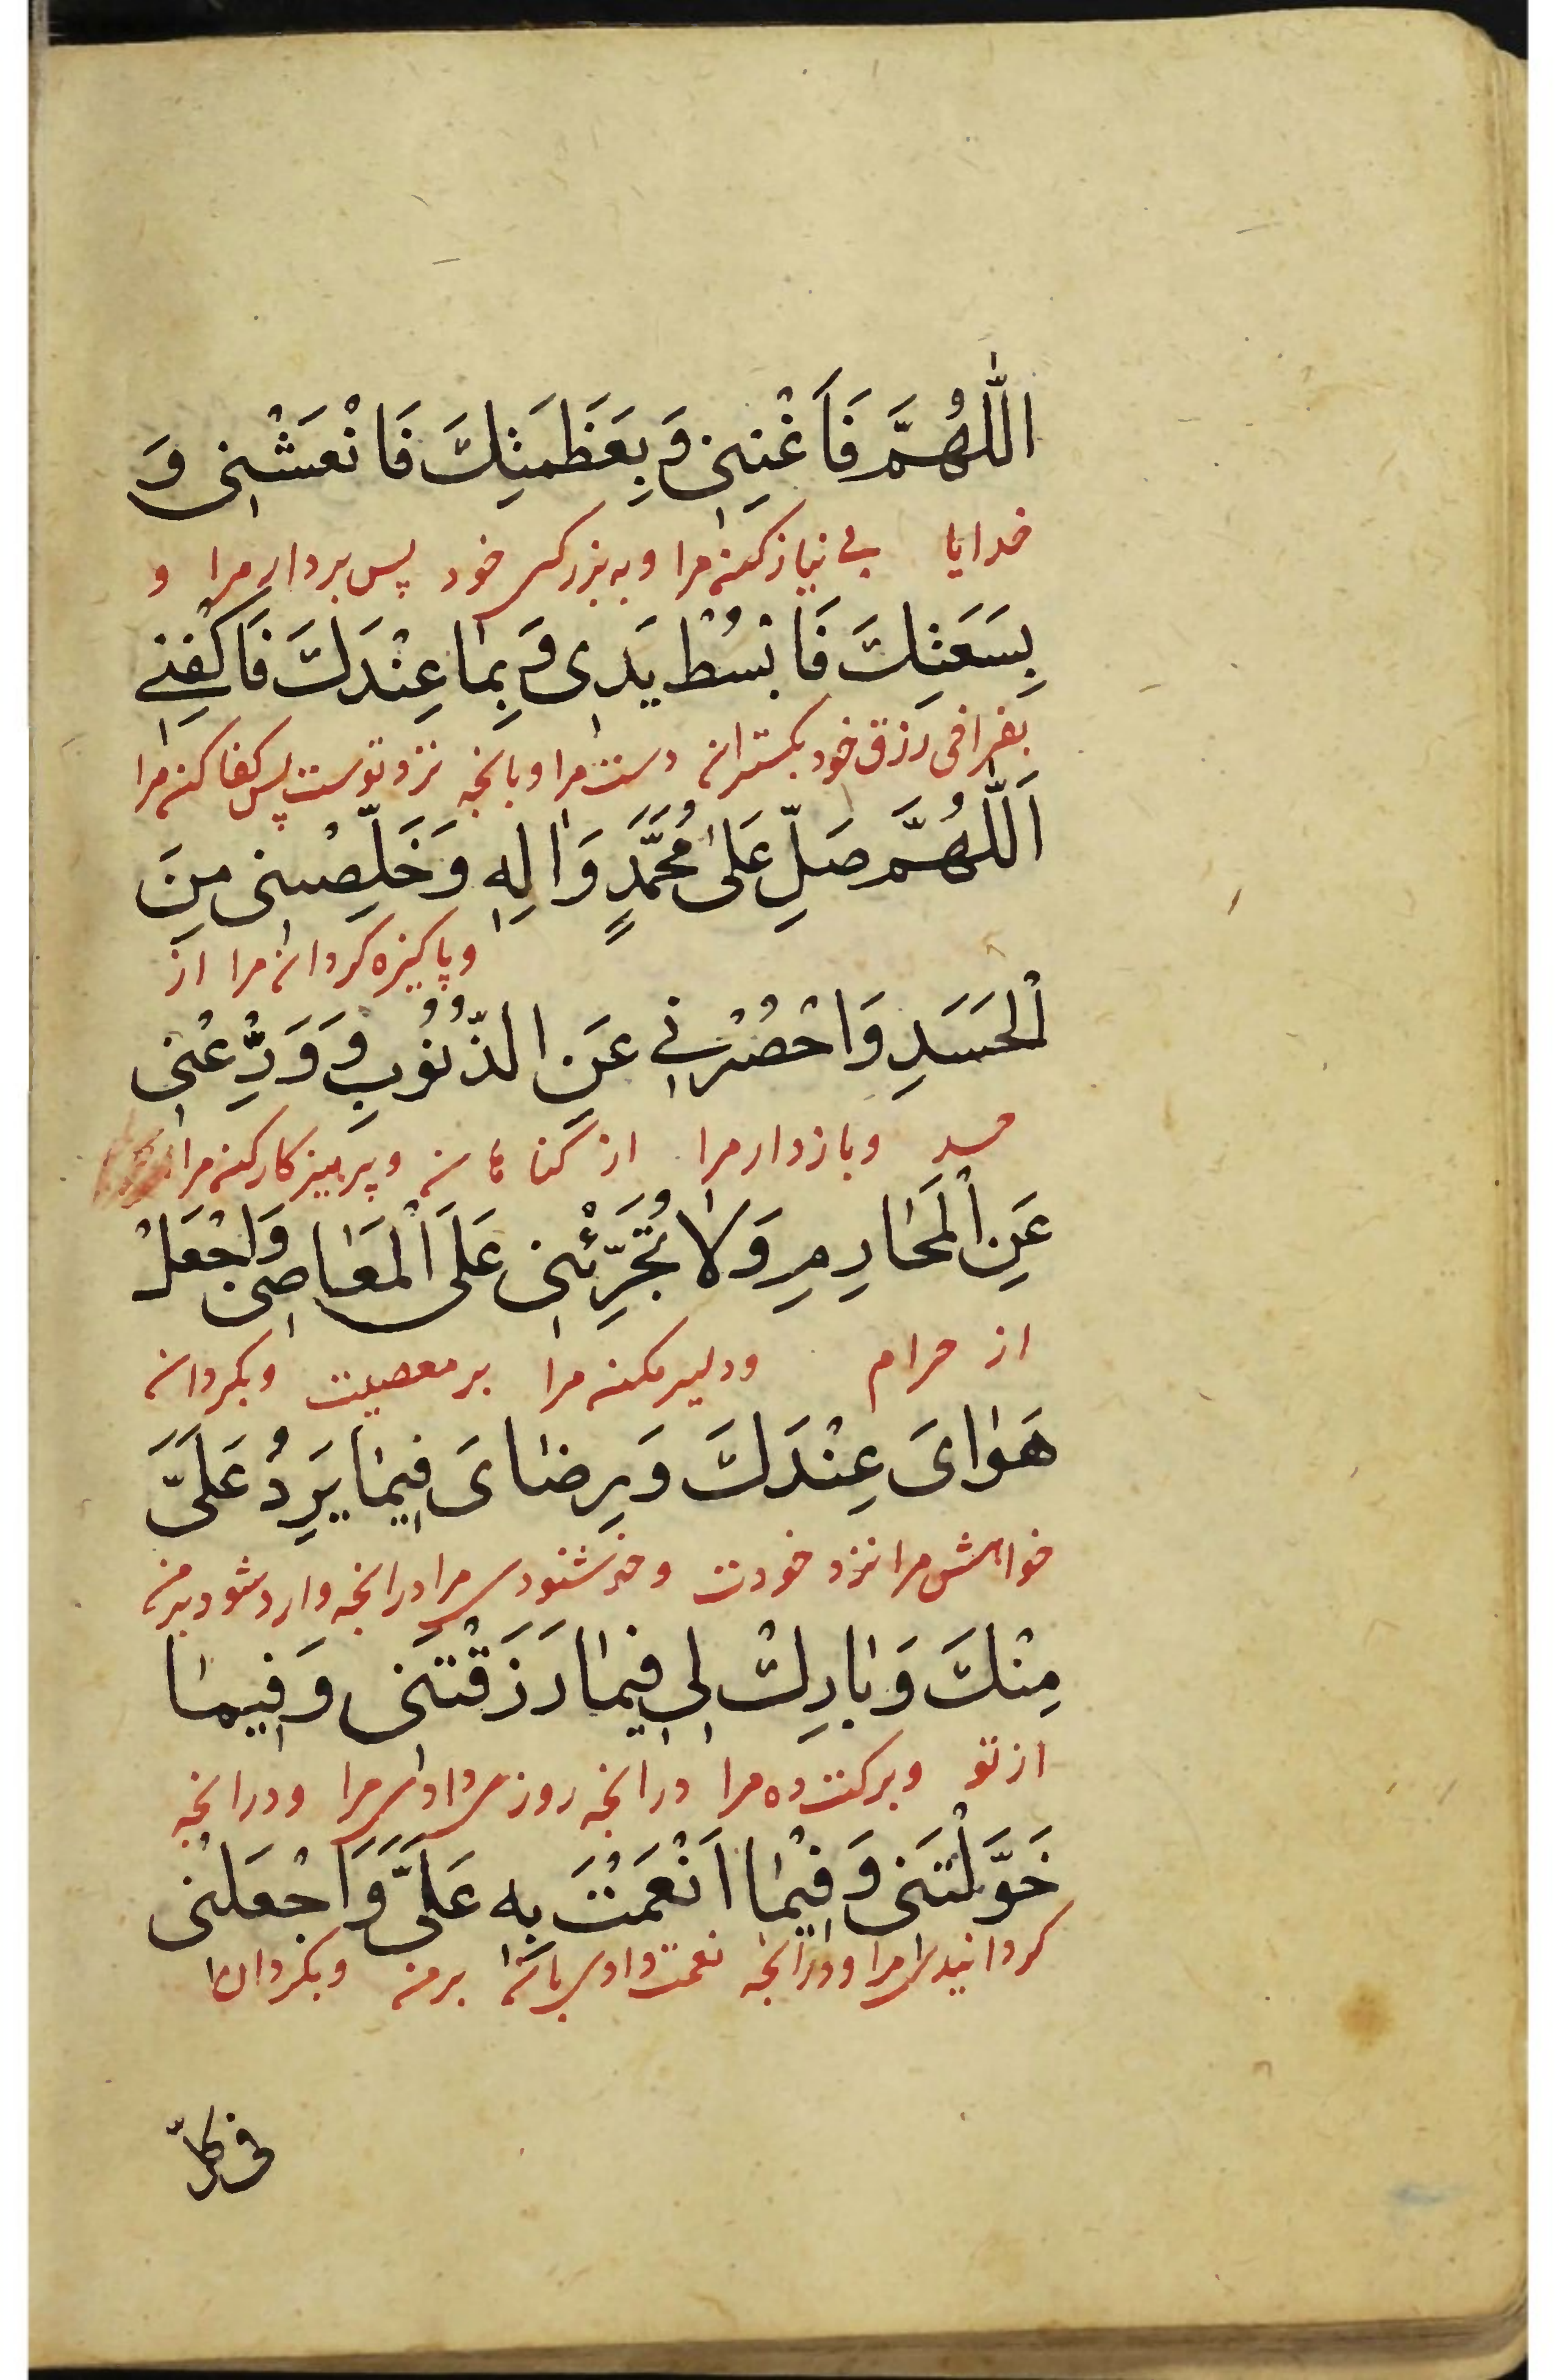 اللّٰهُمَّ فَاَغْنِنِی وَ بِعَظَمَتِكَ فَانْعَشْنِی وَ
خدایا بی نیاز کن مرا و به بزرگی خود پس بردار مرا و
بِسَعَتِكَ فَابْسُطْ یَدِی وَ بِمٰا عِنْدَكَ فَاكْفِنِی
بفراخی رزق خود بگستران دست مرا و بانچه نزد توست پس کفا کن مرا
اَللّٰهُمَّ صَلِّ عَلیٰ مُحَمَّدٍ وَاٰلِهِ وَخَلِّصْنِی مِنَ
و پاکیزه گردان مرا از
الْحَسَدِ وَاحْصُرْنِی عَنِ الذُّنُوبِ وَ وَرِّعْنِی
حسد و بازدار مرا از گناهان و پرهیزکار کن مرا
عَنِ الْمَحٰارِمِ وَلاٰ تُجَرِّئْنِی عَلَی الْمَعٰاصِی وَاجْعَلْ
از حرام و دلیر مکن مرا بر معصیت و بگردان
هَوٰایَ عِنْدَكَ وَ رِضٰایَ فِیمٰا یَرِدُ عَلَیَّ
خواهش مرا نزد خودت و خوشنودی مرا درانچه وارد شود بر من
مِنْكَ وَ بٰارِكْ لِی فِیمٰا رَزَقْتَنِی وَ فِیمٰا
از تو و برکت ده مرا درانچه روزی دادی مرا و درانچه
خَوَّلْتَنِی وَ فِیْمٰا اَنْعَمْتَ بِهِ عَلَیَّ وَاجْعَلْنِی
گردانیدی مرا و درانچه نعمت دادی بان بر من و بگردان مرا
فی کلّ